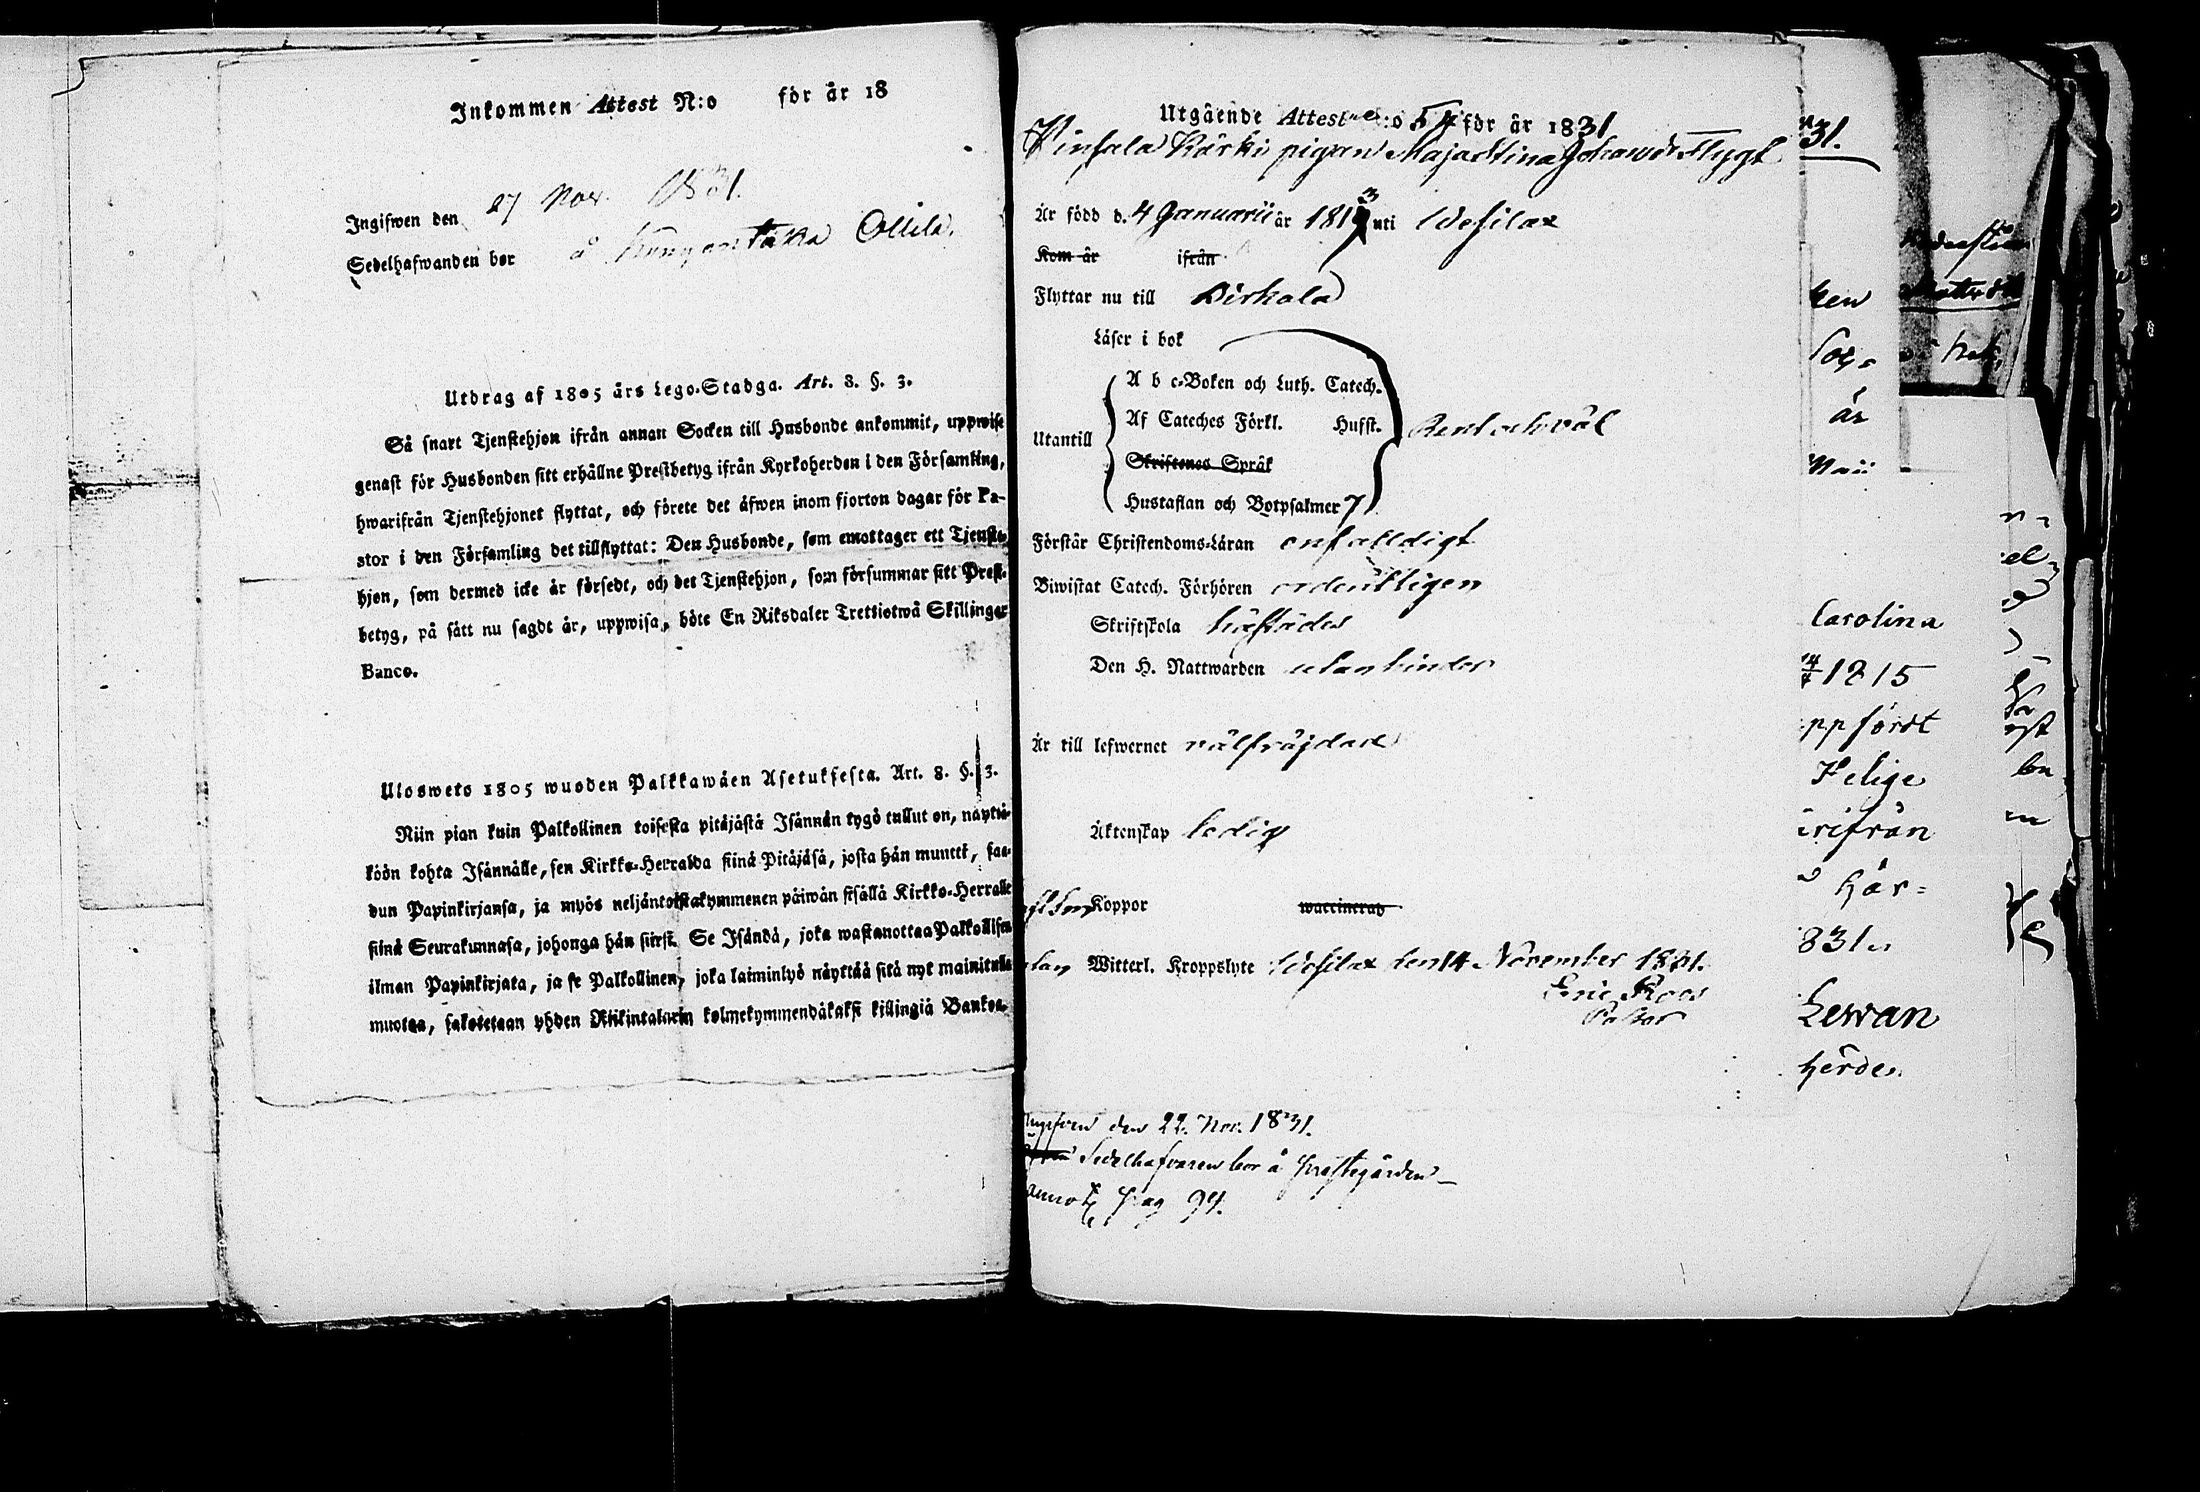 Inkommen Attest N:o för år 18
Ingifwen den 27 Nov. 1831.
Sedelhafwanden bor å Kungantaka Ollila.
Utdrag af 1805 års Lego-Stadga. Art. 8. §. 3.
Så snart Tjenstehjon ifrån annan Socken till Husbonde ankommit, uppwise
genast för Husbonden sitt erhållne Prestbetyg ifrån Kyrkoherden i den Församling,
hwarifrån Tjenstehjonet flyttat, och förete det äfwen inom fjorton dagar för Pa-
stor i den Församling det tillflyttat: Den Husbonde, som emottager ett Tjenste-
hjon, som dermed icke är försedt, och det Tjenstehjon, som försummar sitt Prest-
betyg, på sätt nu sagdt är, uppwisa, böte En Riksdaler Trettiotwå Skillingar
Banco.
Ulosweto 1805 wuoden Palkkawäen Asetuksesta. Art. 8. §. 3.
Niin pian kuin Palkollinen toisesta pitäjästä Isännän tygö tullut on, näyttä-
köön kohta Isännälle, sen Kirkko-Herralda siinä Pitäjäsä, josta hän muutti, saa-
dun Papinkirjansa, ja myös neljäntoistakymmenen päiwän sisällä Kirkko-Herralle
siinä Seurakunnasa, johonga hän siirsi. Se Isändä, joka wastanottaa Palkollisen
ilman Papinkirjata, ja se Palkollinen, joka laiminlyö näyttää sitä nyt mainitulla
muotoa, sakotetaan yhden Riikintalarin kolmekymmendäkaksi killingiä Bankoa.
Utgående Attest N:o 54 för år 1831
Pinsala Kärki pigan Maja Stina Johansdr Flygt
Är född d. 4 Januarii år 1813 uti Wesilax
Kom år ifrån
Flyttar nu till Birkala
Läser i bok
A b c-Boken och Luth. Catech.
Utantill Af Cateches Förkl. Hufst. Rent och väl
Skriftenes Språk
Hustaflan och Botpsalmer 7
Förstår Christendoms-Läran enfalldigt
Biwistat Catech. Förhören ordentligen
Skriftskola häfvades
Den H. Nattwarden utan hinder
Är till lefwernet välfräjdad
Äktenskap ledig
Koppor waccinerad
Witterl. Kroppslyte Wesilax den 14 November 1831.
Eric Roos
Pastor
den 22. Nov. 1831.
Sedelhafvaren bor å Prästegården
annot. pag 94.
31.
ken
år
Maii
Carolina
1815
ppfördt
Helige
rifrån
här-
831.
Lewan
herde.